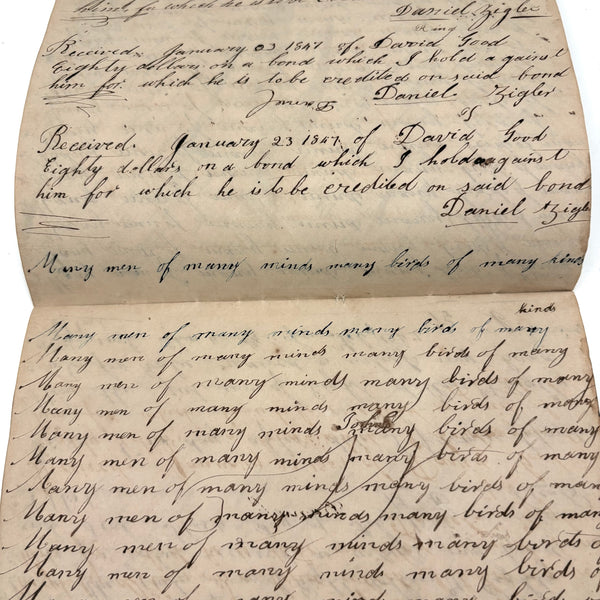 him for which he is to be
Daniel Zigler
Received. January 03 1847 of David Good
Eighty dollars on a bond which I hold against
him for which he is to be credited on said bond
Daniel Zigler
of
Received. January 23 1847 of David Good
Eighty dollars on a bond which I hold against
him for which he is to be eredited on said bond
Daniel Zigler
Many men of many minds many birds of many kinds
kinds
Many men of many minds many birds of many
Many men of many minds many birds of many
Many men of many minds many birds of many
Many men of many minds many birds of many
Many men of many minds many birds of many
Many men of many minds many birds of many
Many men of many minds many birds of many
Many men of many minds many birds of many
Many men of many minds many birds of
Many men of many minds many birds of
many men of many minds many birds